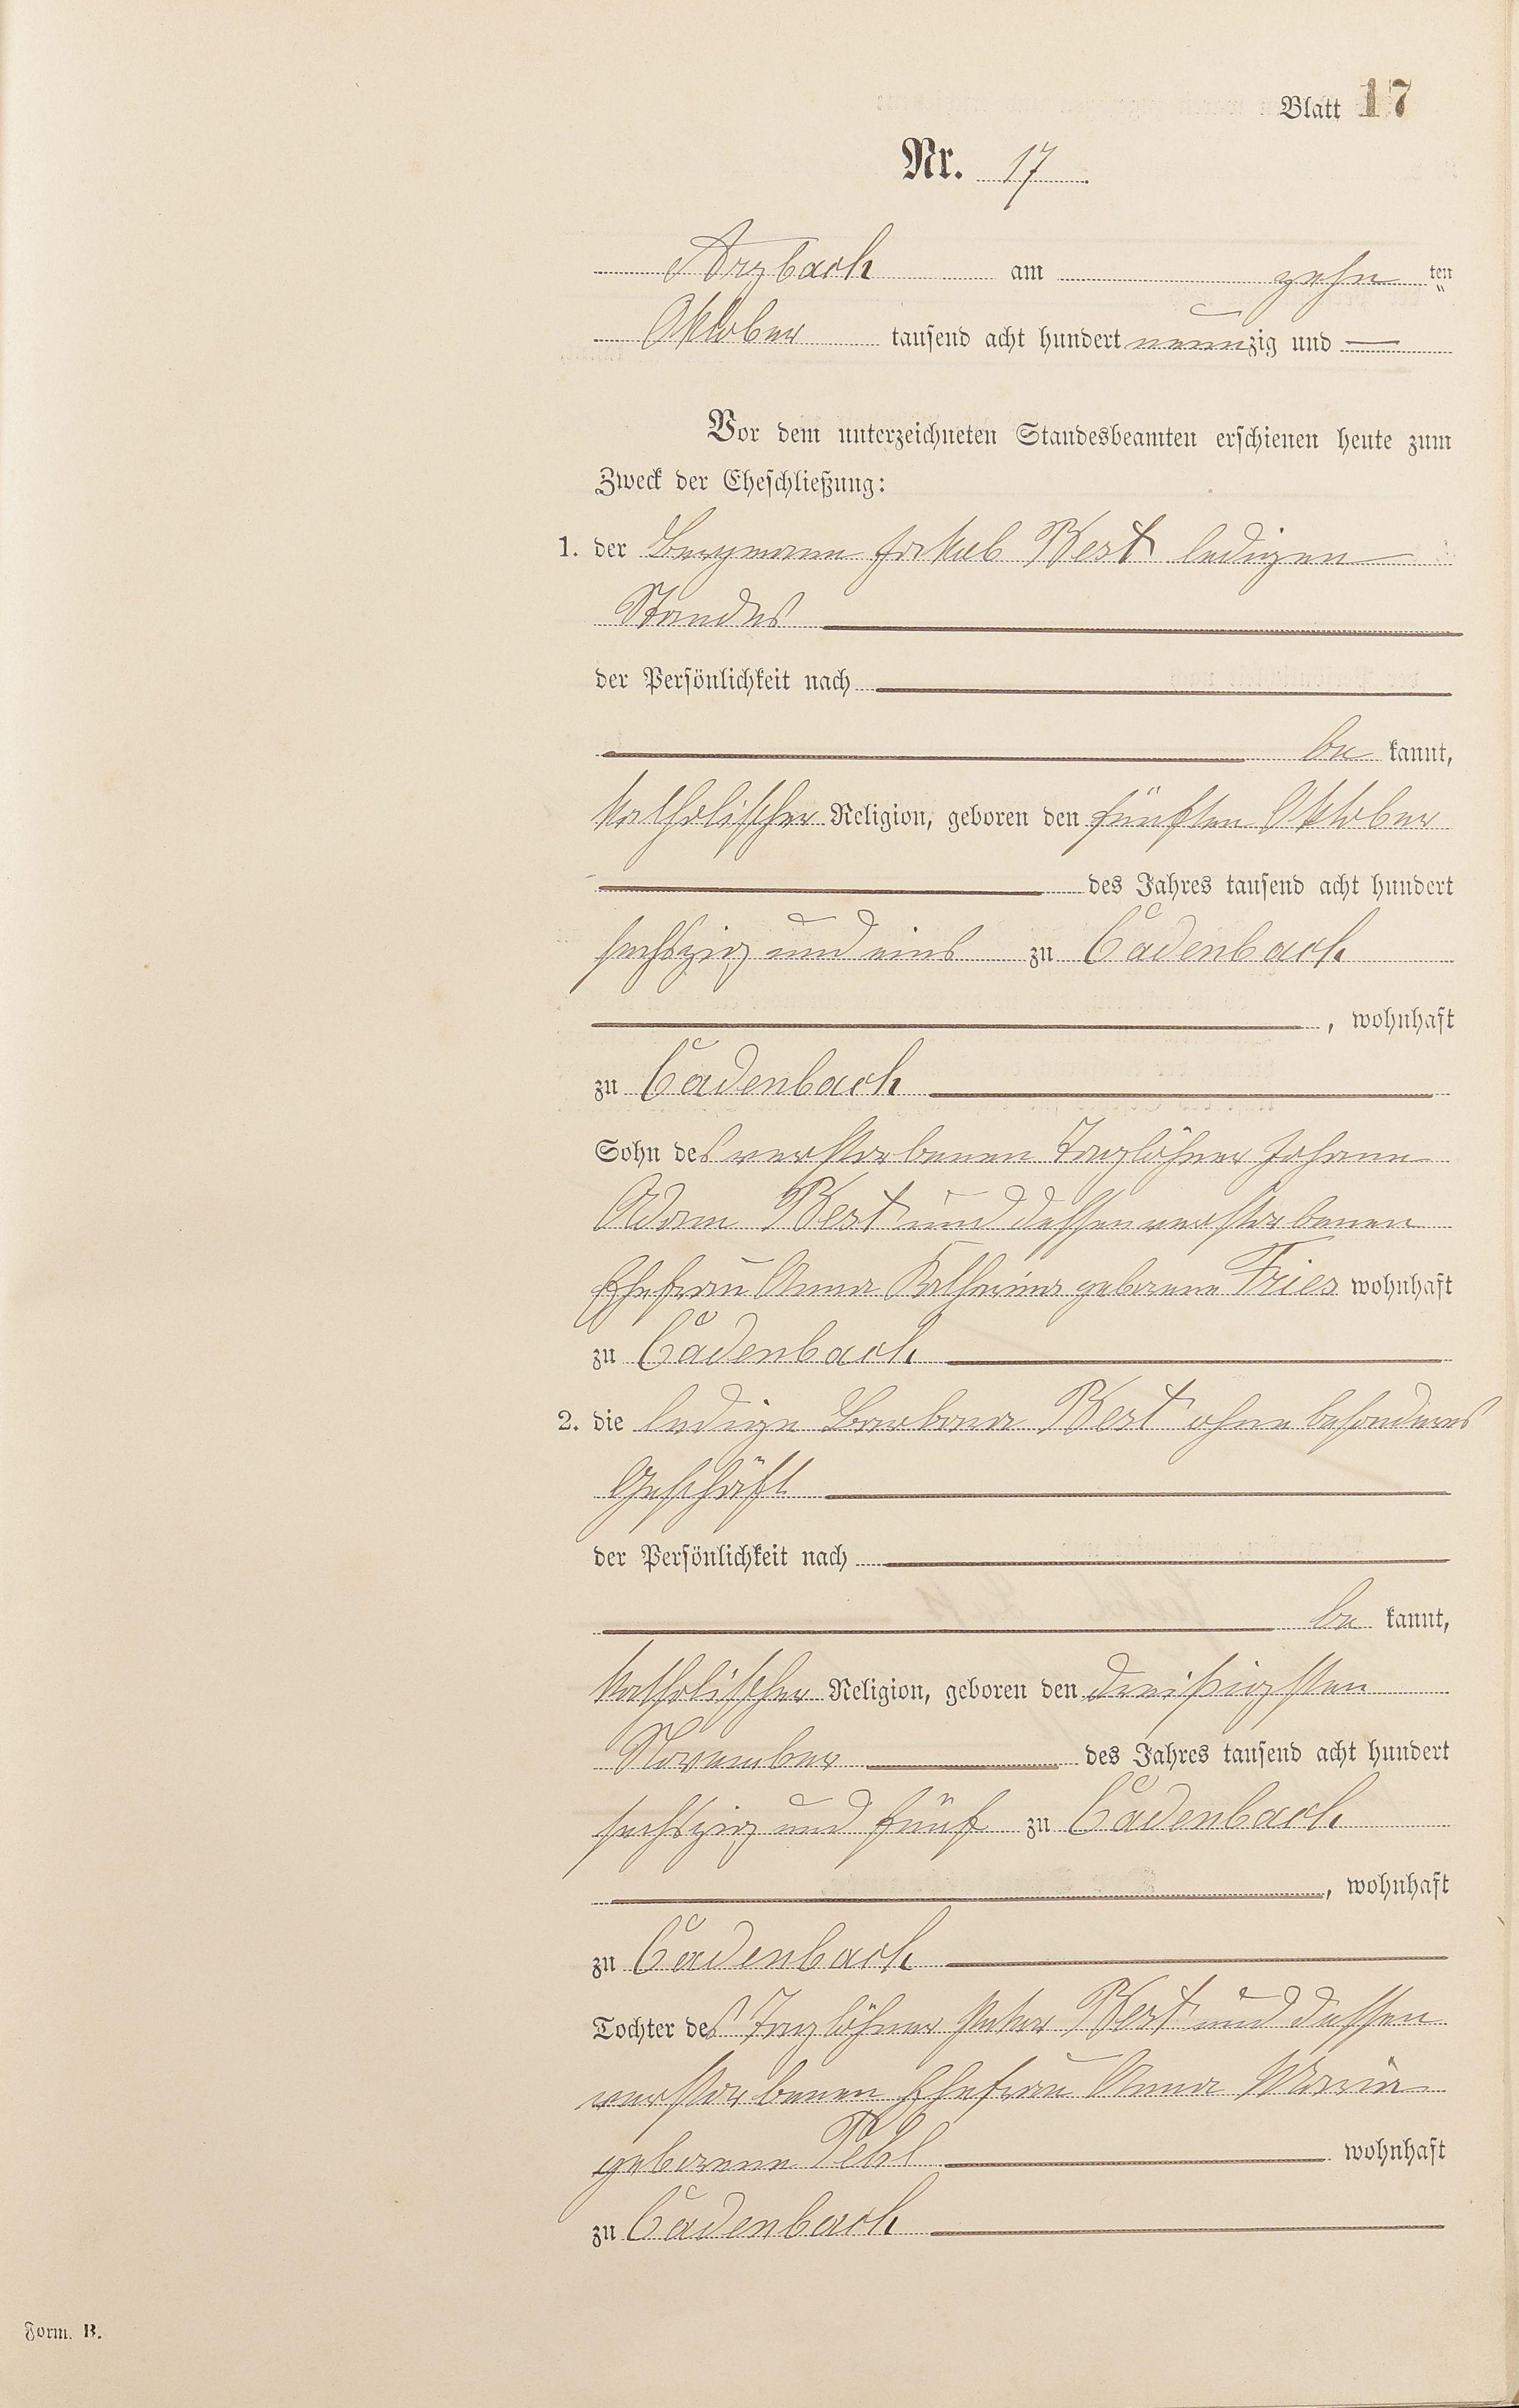 Blatt 17
Nr. 17
Arzbach am zehn ten
Oktober tausend acht hundert neunzig und —
Vor dem unterzeichneten Standesbeamten erschienen heute zum
Zweck der Eheschließung:
1. der Bergmann Jakob Best ledigen
Standes
der Persönlichkeit nach
be kannt,
katholischer Religion, geboren den fünften Oktober
des Jahres tausend acht hundert
sechszig und eins zu Cadenbach
, wohnhaft
zu Cadenbach
Sohn des verstorbenen Taglöhner Johann
Adam Best und dessen verstorbenen
Ehefrau Anna Katharina geborene Fries wohnhaft
zu Cadenbach
2. die ledige Barbara Best ohne besonderes
Geschäft
der Persönlichkeit nach
be kannt,
katholischer Religion, geboren den dreißigsten
November des Jahres tausend acht hundert
sechszig und fünf zu Cadenbach
, wohnhaft
zu Cadenbach
Tochter des Taglöhner Peter Best und dessen
verstorbenen Ehefrau Anna Maria
geborene wohnhaft
zu Cadenbach
Form. B.